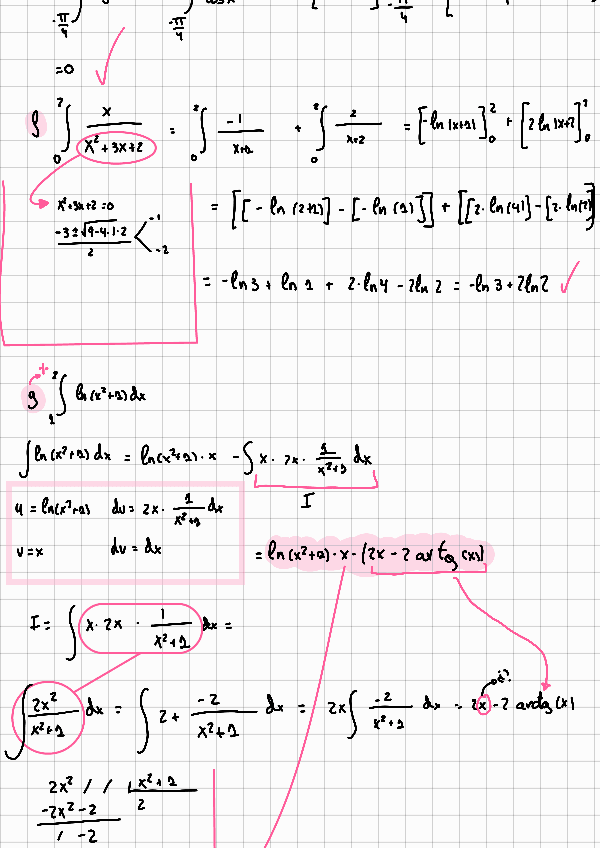 -π/4 ∫ -π/4 ∫ cosx [ ] -π/4 [
=0
f ∫₀² x/(x²+3x+2) = ∫₀² -1/(x+1) + ∫₀² 2/(x+2) = [-ln|x+1|]₀² + [2 ln|x+2|]₀²
x²+3x+2=0
(-3±√(9-4·1·2))/2 < -1 -2
= [[-ln(2+1)]-[-ln(1)]] + [[2·ln(4)]-[2·ln(2)]]
= -ln3 + ln1 + 2·ln4 - 2ln2 = -ln3 + 2ln2
g → + ∫₁² ln(x²+1)dx
∫ln(x²+1)dx = ln(x²+1)·x - ∫x·2x·1/(x²+1) dx
I
u = ln(x²+1) du = 2x·1/(x²+1) dx
v=x dv = dx
= ln(x²+1)·x-(2x-2 arctg(x))
I = ∫ x·2x·1/(x²+1) dx =
∫ 2x²/(x²+1) dx = ∫ 2+ -2/(x²+1) dx = 2x∫ -2/(x²+1) dx - 2x-2 arctg(x)
2x² / / x²+1
-2x²-2 2
/ -2